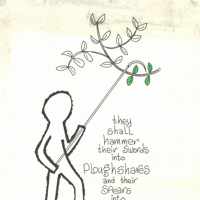 they
shall
hammer
their swords
into
Ploughshares
and their
Spears
into